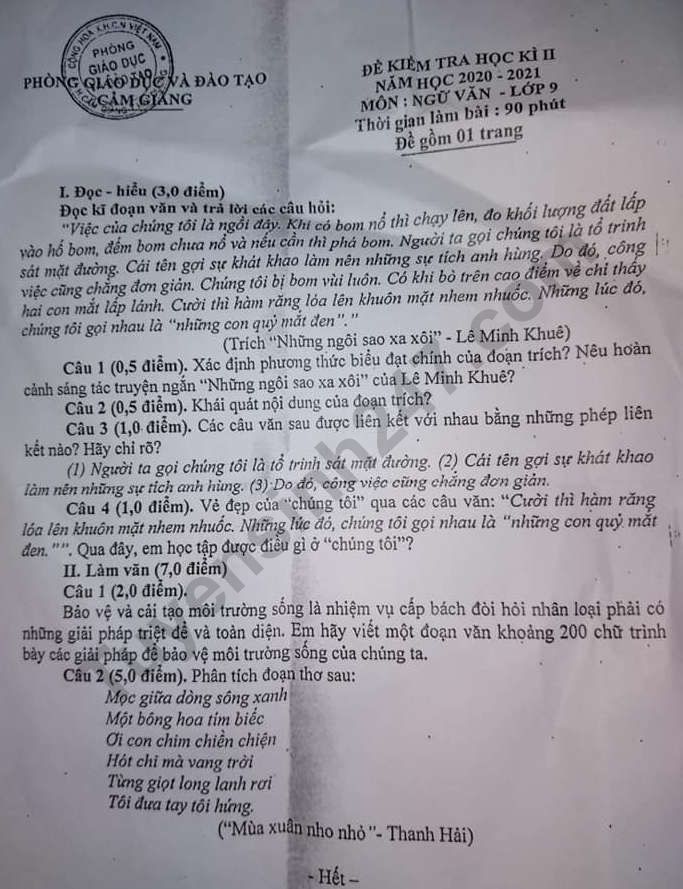 CỘNG HÒA X.H.C.N VIỆT NAM
PHÒNG
GIÁO DỤC
VÀ ĐÀO TẠO
PHÒNG GIÁO DỤC VÀ ĐÀO TẠO
CẨM GIÀNG
ĐỀ KIỂM TRA HỌC KÌ II
NĂM HỌC 2020 - 2021
MÔN : NGỮ VĂN - LỚP 9
Thời gian làm bài : 90 phút
Đề gồm 01 trang
I. Đọc - hiểu (3,0 điểm)
Đọc kĩ đoạn văn và trả lời các câu hỏi:
"Việc của chúng tôi là ngồi đây. Khi có bom nổ thì chạy lên, đo khối lượng đất lấp
vào hố bom, đếm bom chưa nổ và nếu cần thì phá bom. Người ta gọi chúng tôi là tổ trinh
sát mặt đường. Cái tên gợi sự khát khao làm nên những sự tích anh hùng. Do đó, công
việc cũng chẳng đơn giản. Chúng tôi bị bom vùi luôn. Có khi bò trên cao điểm về chỉ thấy
hai con mắt lấp lánh. Cười thì hàm răng lóa lên khuôn mặt nhem nhuốc. Những lúc đó,
chúng tôi gọi nhau là "những con quỷ mắt đen"."
(Trích "Những ngôi sao xa xôi" - Lê Minh Khuê)
Câu 1 (0,5 điểm). Xác định phương thức biểu đạt chính của đoạn trích? Nêu hoàn
cảnh sáng tác truyện ngắn "Những ngôi sao xa xôi" của Lê Minh Khuê?
Câu 2 (0,5 điểm). Khái quát nội dung của đoạn trích?
Câu 3 (1,0 điểm). Các câu văn sau được liên kết với nhau bằng những phép liên
kết nào? Hãy chỉ rõ?
(1) Người ta gọi chúng tôi là tổ trinh sát mặt đường. (2) Cái tên gợi sự khát khao
làm nên những sự tích anh hùng. (3) Do đó, công việc cũng chẳng đơn giản.
Câu 4 (1,0 điểm). Vẻ đẹp của "chúng tôi" qua các câu văn: "Cười thì hàm răng
lóa lên khuôn mặt nhem nhuốc. Những lúc đó, chúng tôi gọi nhau là "những con quỷ mắt
đen."". Qua đây, em học tập được điều gì ở "chúng tôi"?
II. Làm văn (7,0 điểm)
Câu 1 (2,0 điểm).
Bảo vệ và cải tạo môi trường sống là nhiệm vụ cấp bách đòi hỏi nhân loại phải có
những giải pháp triệt để và toàn diện. Em hãy viết một đoạn văn khoảng 200 chữ trình
bày các giải pháp để bảo vệ môi trường sống của chúng ta.
Câu 2 (5,0 điểm). Phân tích đoạn thơ sau:
Mọc giữa dòng sông xanh
Một bông hoa tím biếc
Ơi con chim chiền chiện
Hót chi mà vang trời
Từng giọt long lanh rơi
Tôi đưa tay tôi hứng.
("Mùa xuân nho nhỏ"- Thanh Hải)
- Hết –
tuyensinh247.com